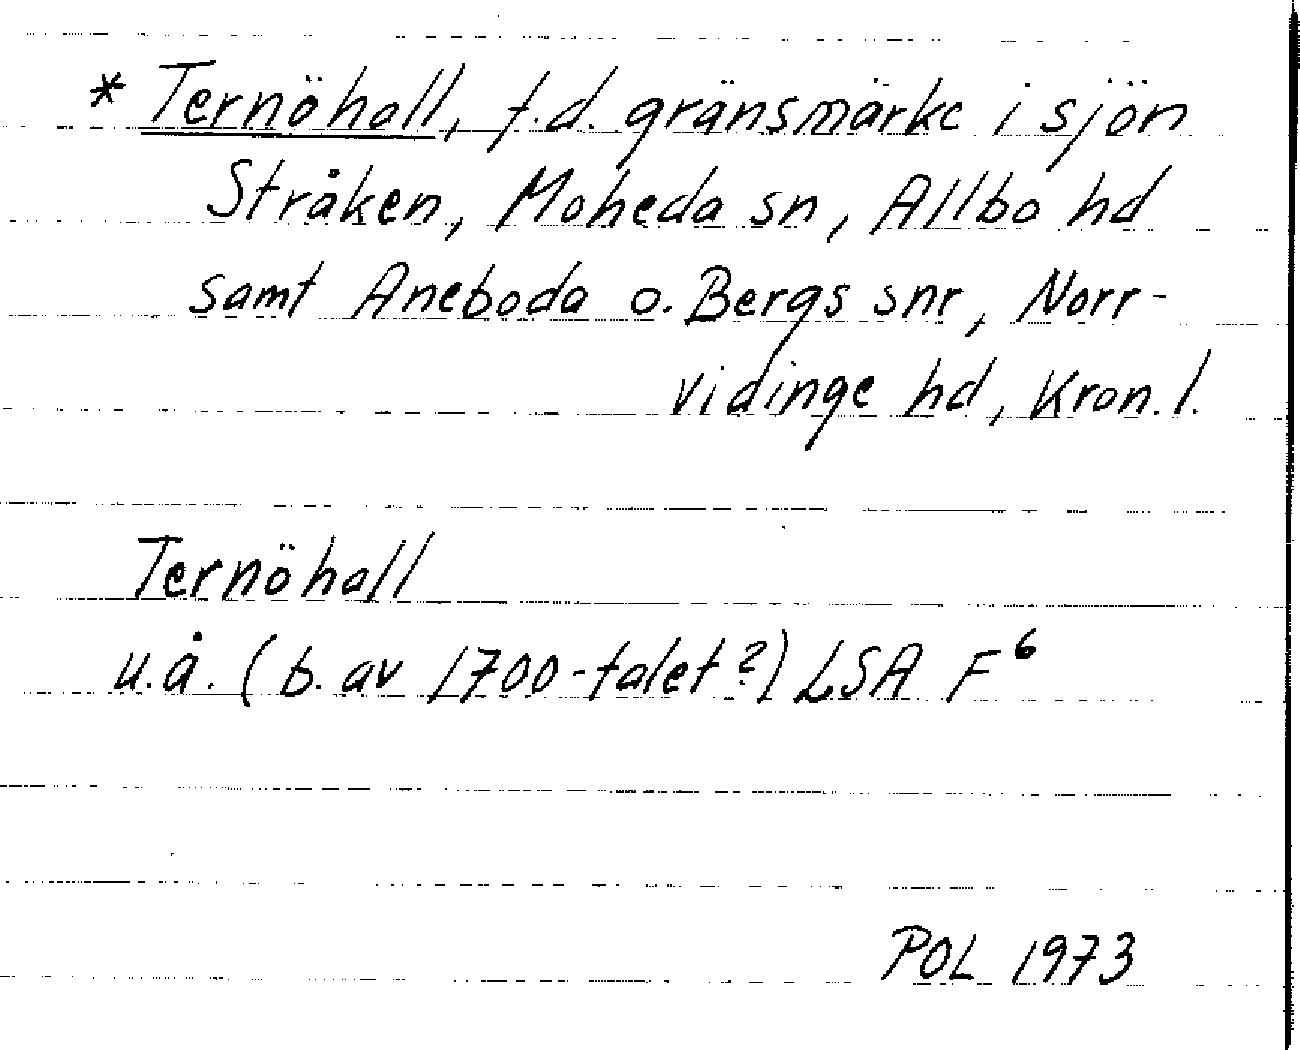 * Ternöhall, f.d. gränsmärke i sjön
Stråken, Moheda sn, Allbo hd
samt Aneboda o. Bergs snr, Norr-
vidinge hd, Kron. l.
Ternöhall
u.å. (b. av 1700-talet?) LSA F⁶
POL 1973